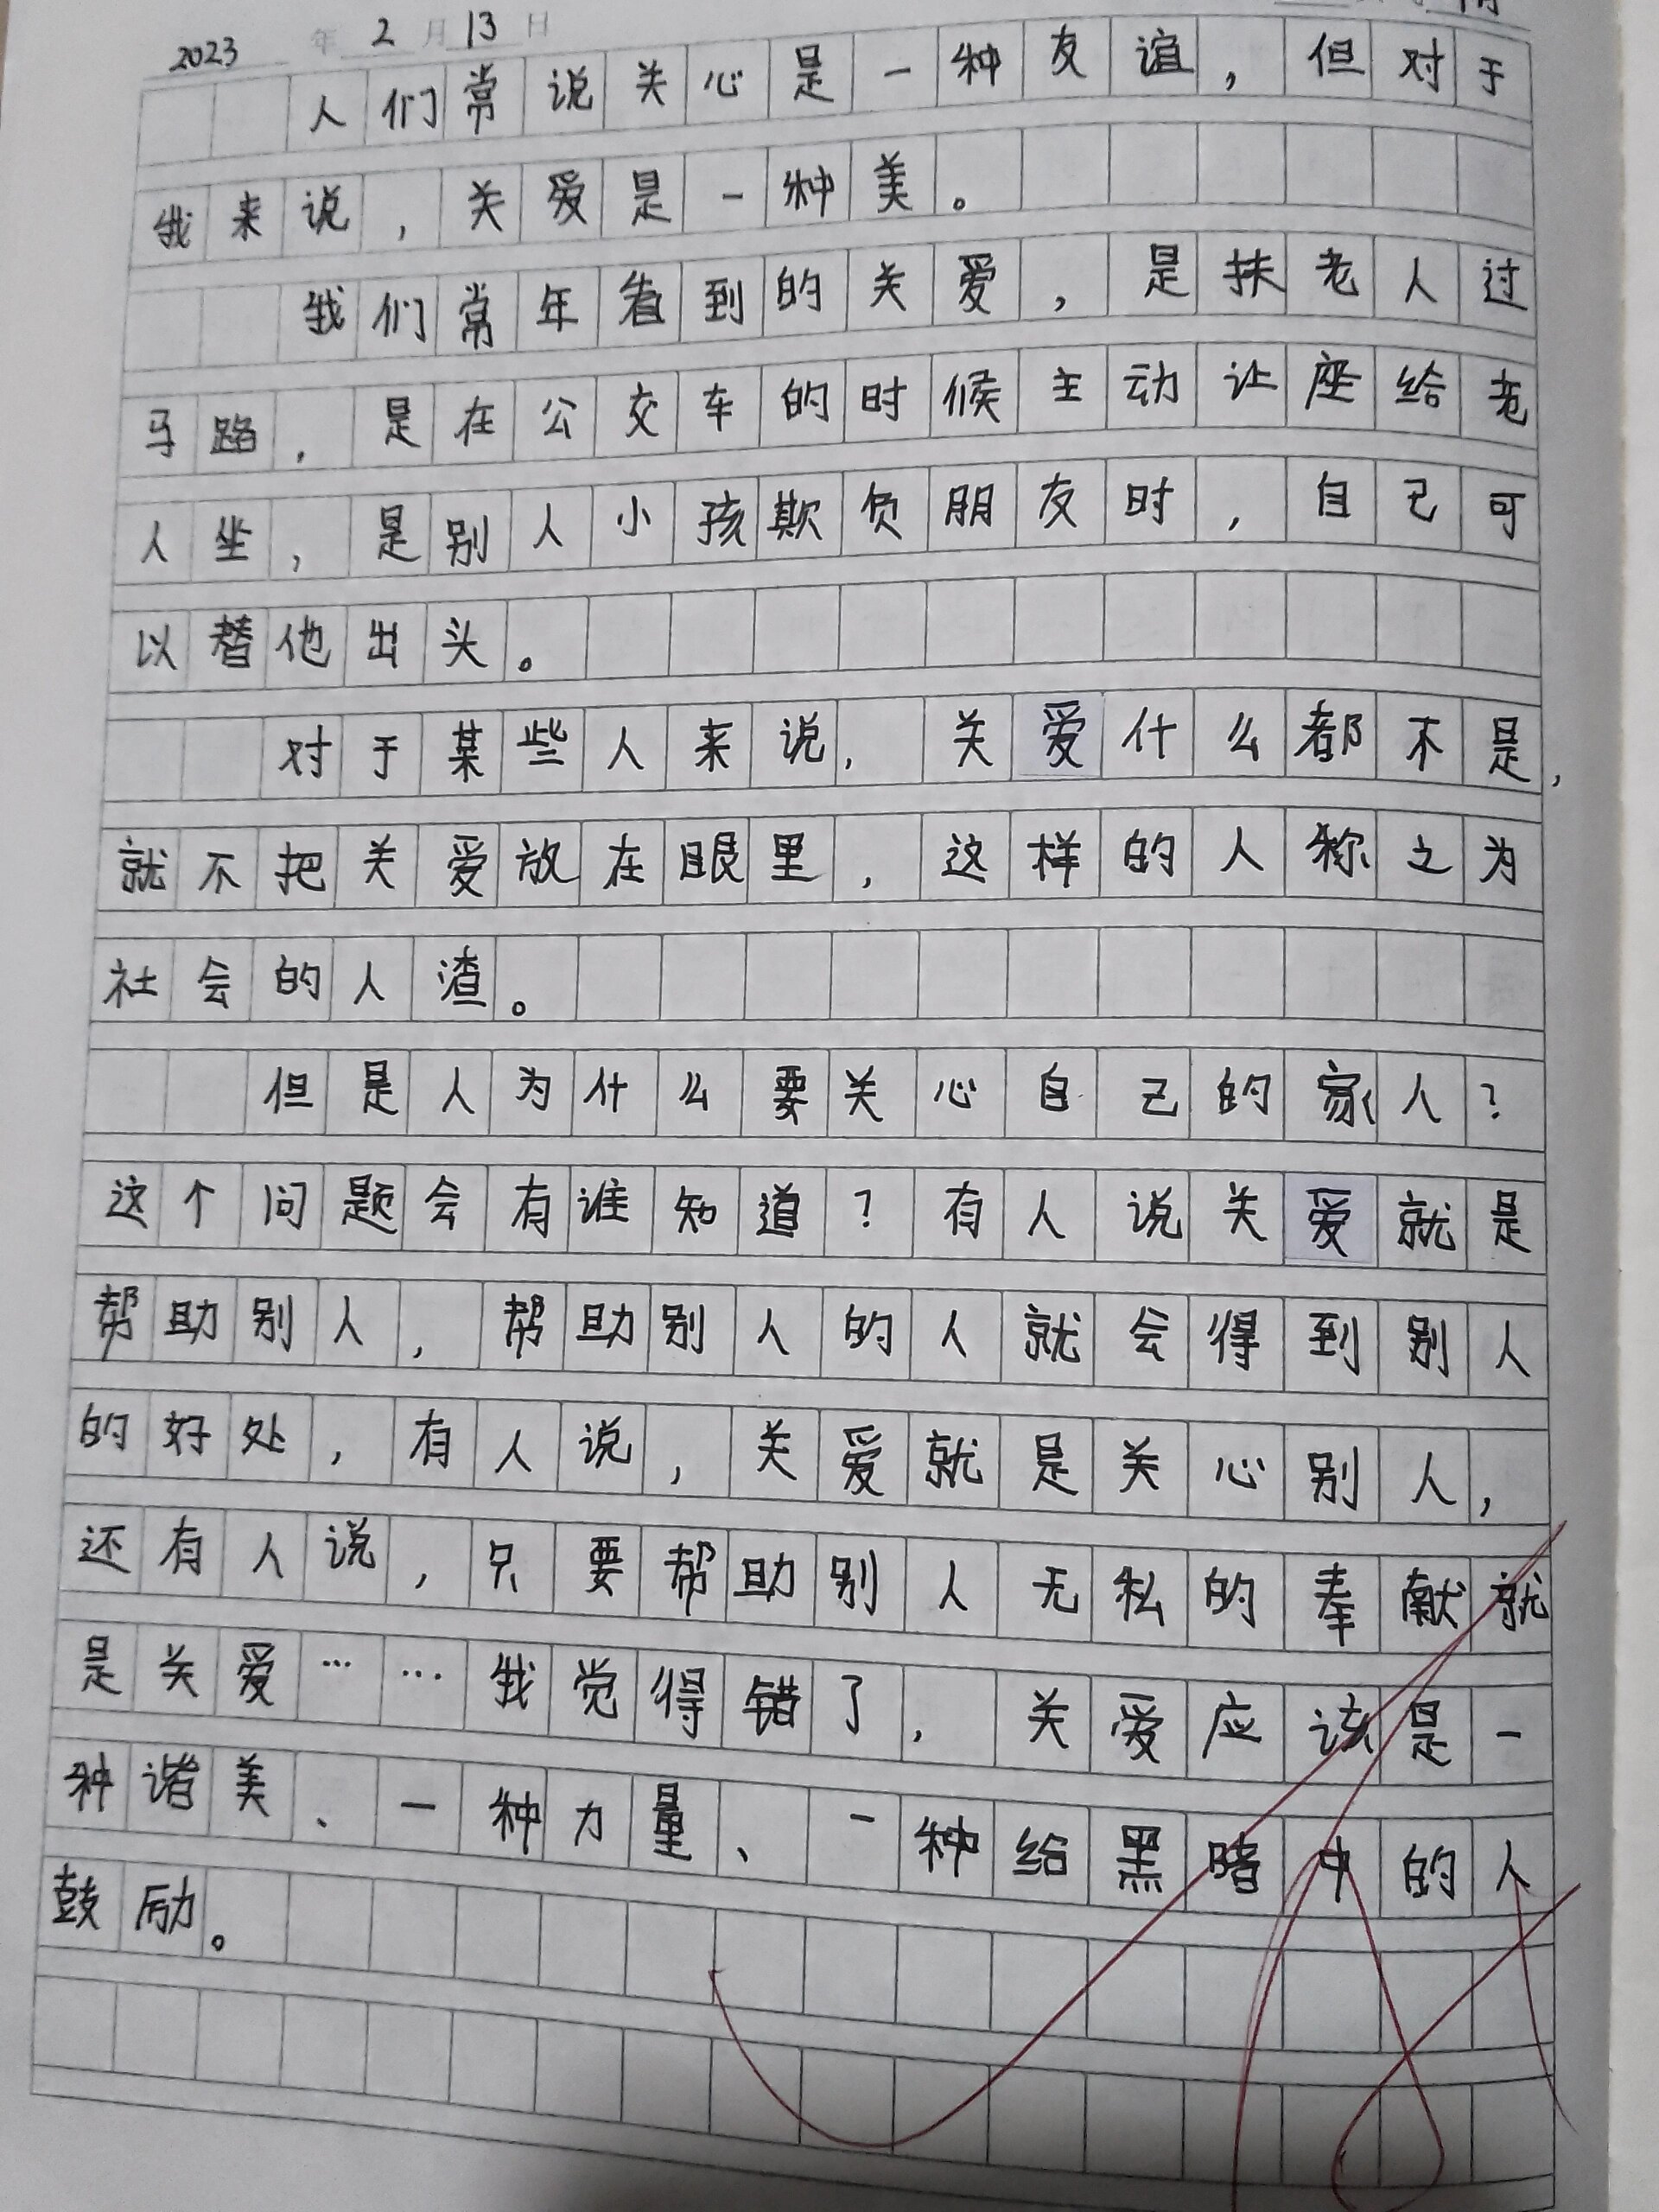 2023年2月13日
人们常说关心是一种友谊,但对于
我来说,关爱是一种美。
我们常年看到的关爱,是扶老人过
马路,是在公交车的时候主动让座给老
人坐,是别人小孩欺负朋友时,自己可
以替他出头。
对于某些人来说,关爱什么都不是,
就不把关爱放在眼里,这样的人称之为
社会的人渣。
但是人为什么要关心自己的家人?
这个问题会有谁知道?有人说关爱就是
帮助别人,帮助别人的人就会得到别人
的好处,有人说,关爱就是关心别人,
还有人说,只要帮助别人无私的奉献就
是关爱……我觉得错了,关爱应该是一
种谐美、一种力量、一种给黑暗中的人
鼓励。